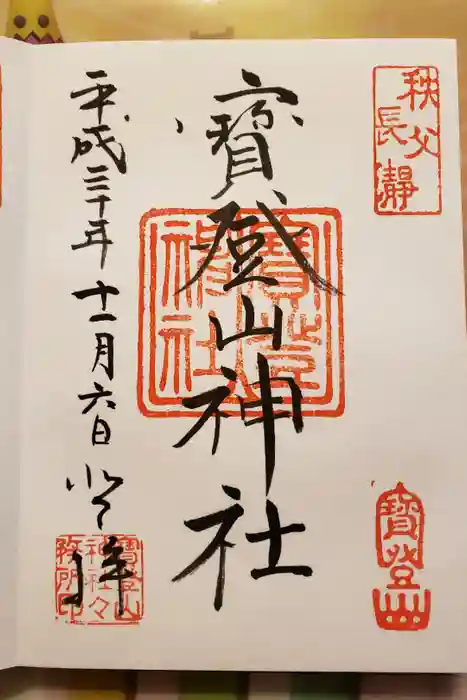 秩父
長瀞
寶登山神社
寶登山
神社
寶登山
平成三十年十一月六日
登拝
寶登山
神社々
務所印